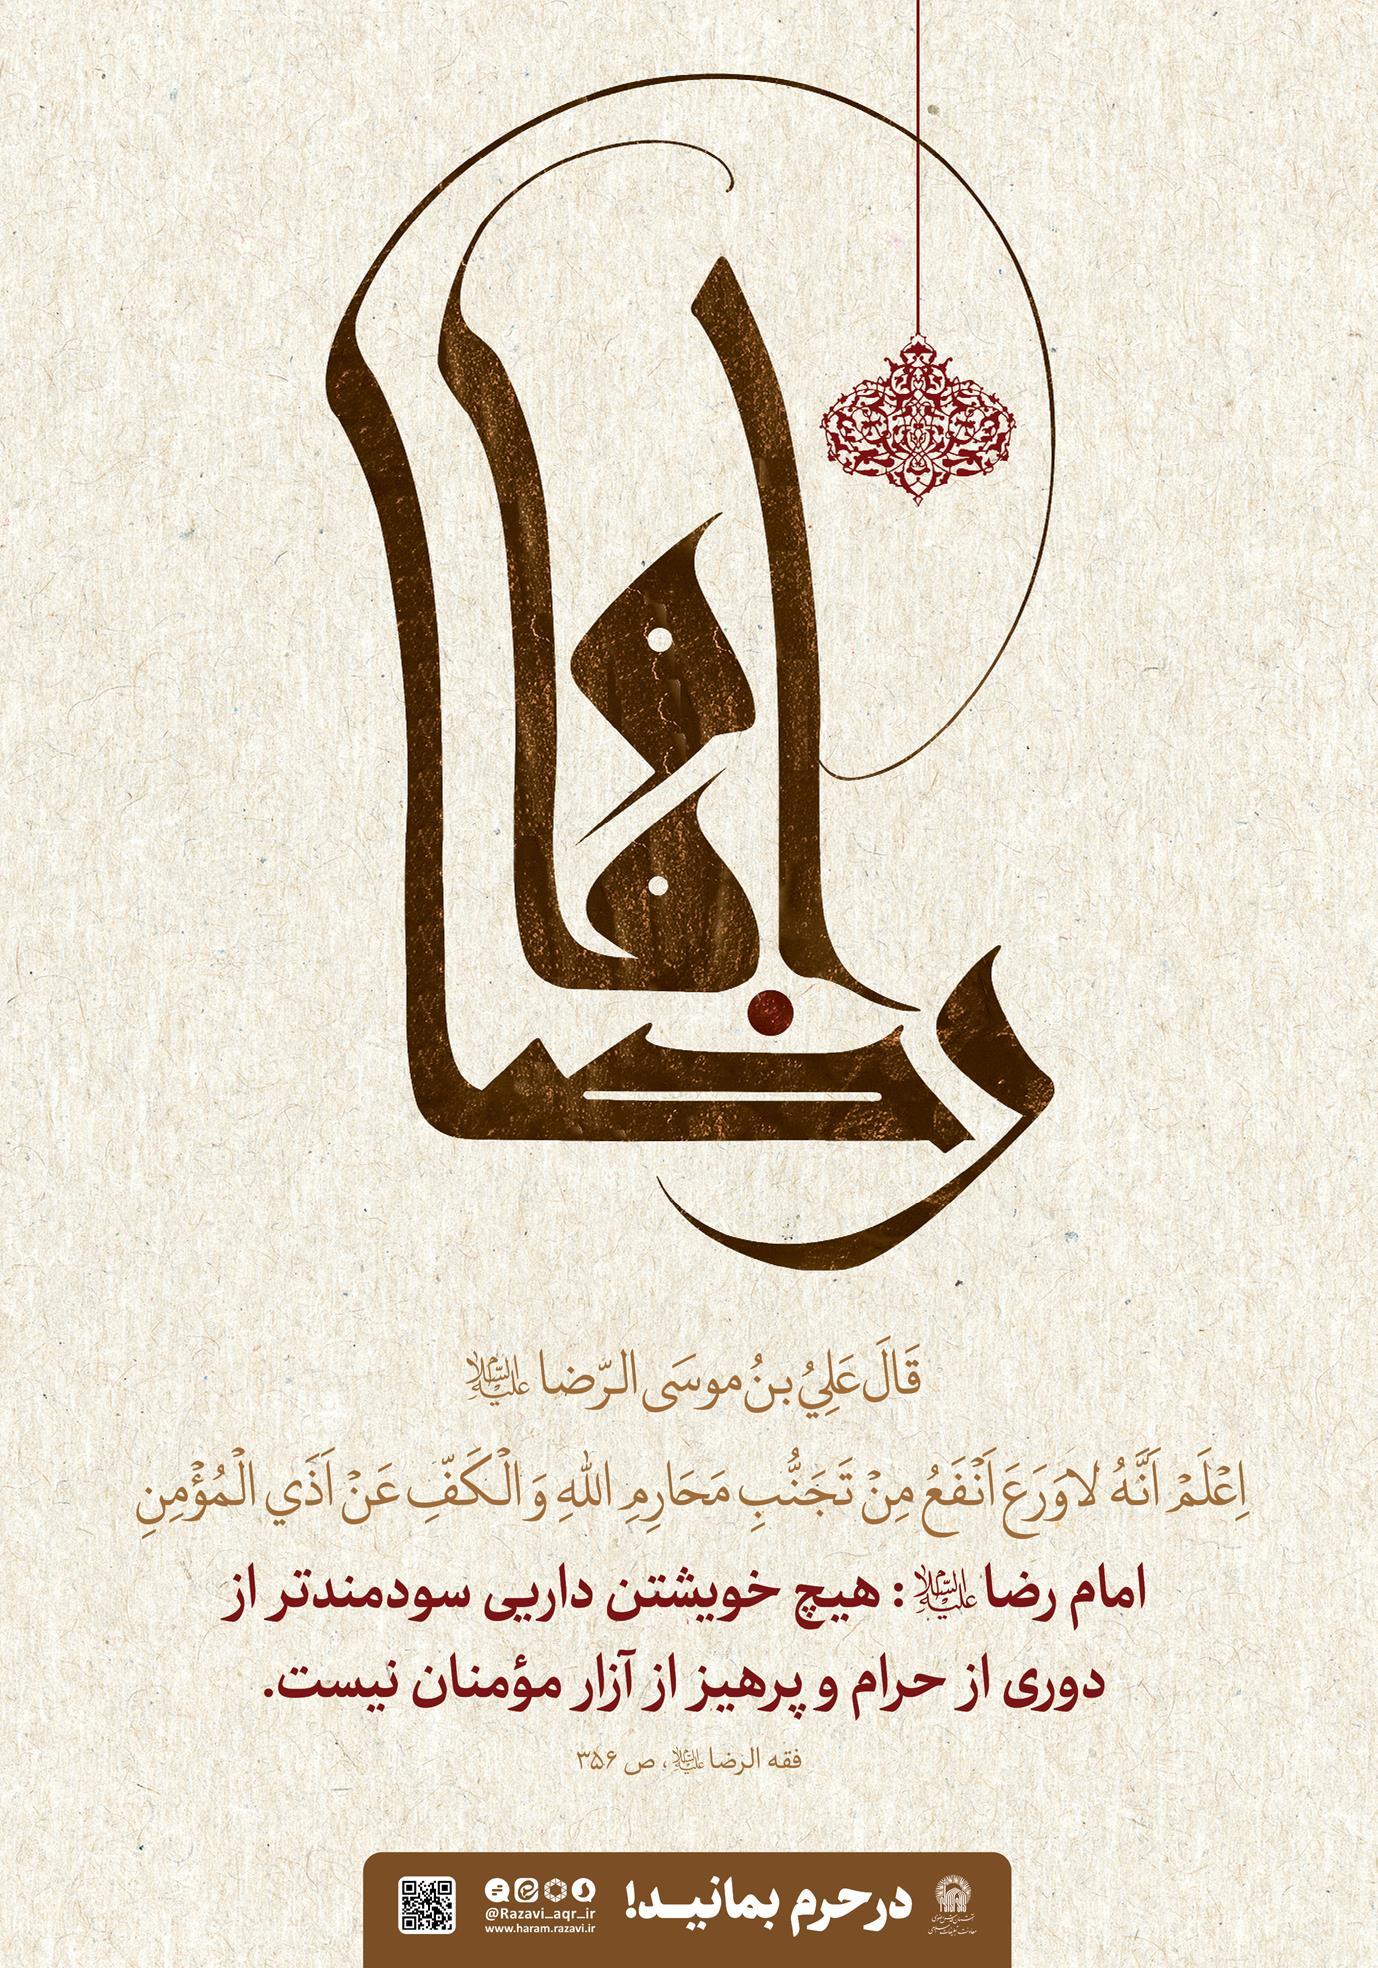 امام رضا
قَالَ عَلِيُ بنُ موسَى الرِّضا عليه السلام
اِعْلَمْ اَنَّهُ لاوَرَعَ اَنْفَعُ مِنْ تَجَنُّبِ مَحَارِمِ اللهِ وَالْكَفِّ عَنْ اَذَي الْمُؤْمِنِ
امام رضا عليه السلام: هیچ خویشتن داریی سودمندتر از
دوری از حرام و پرهیز از آزار مؤمنان نیست.
فقه الرضا عليه السلام، ص ۳۵۶
درحرم بمانید!
@Razavi_aqr_ir
www.haram.razavi.ir